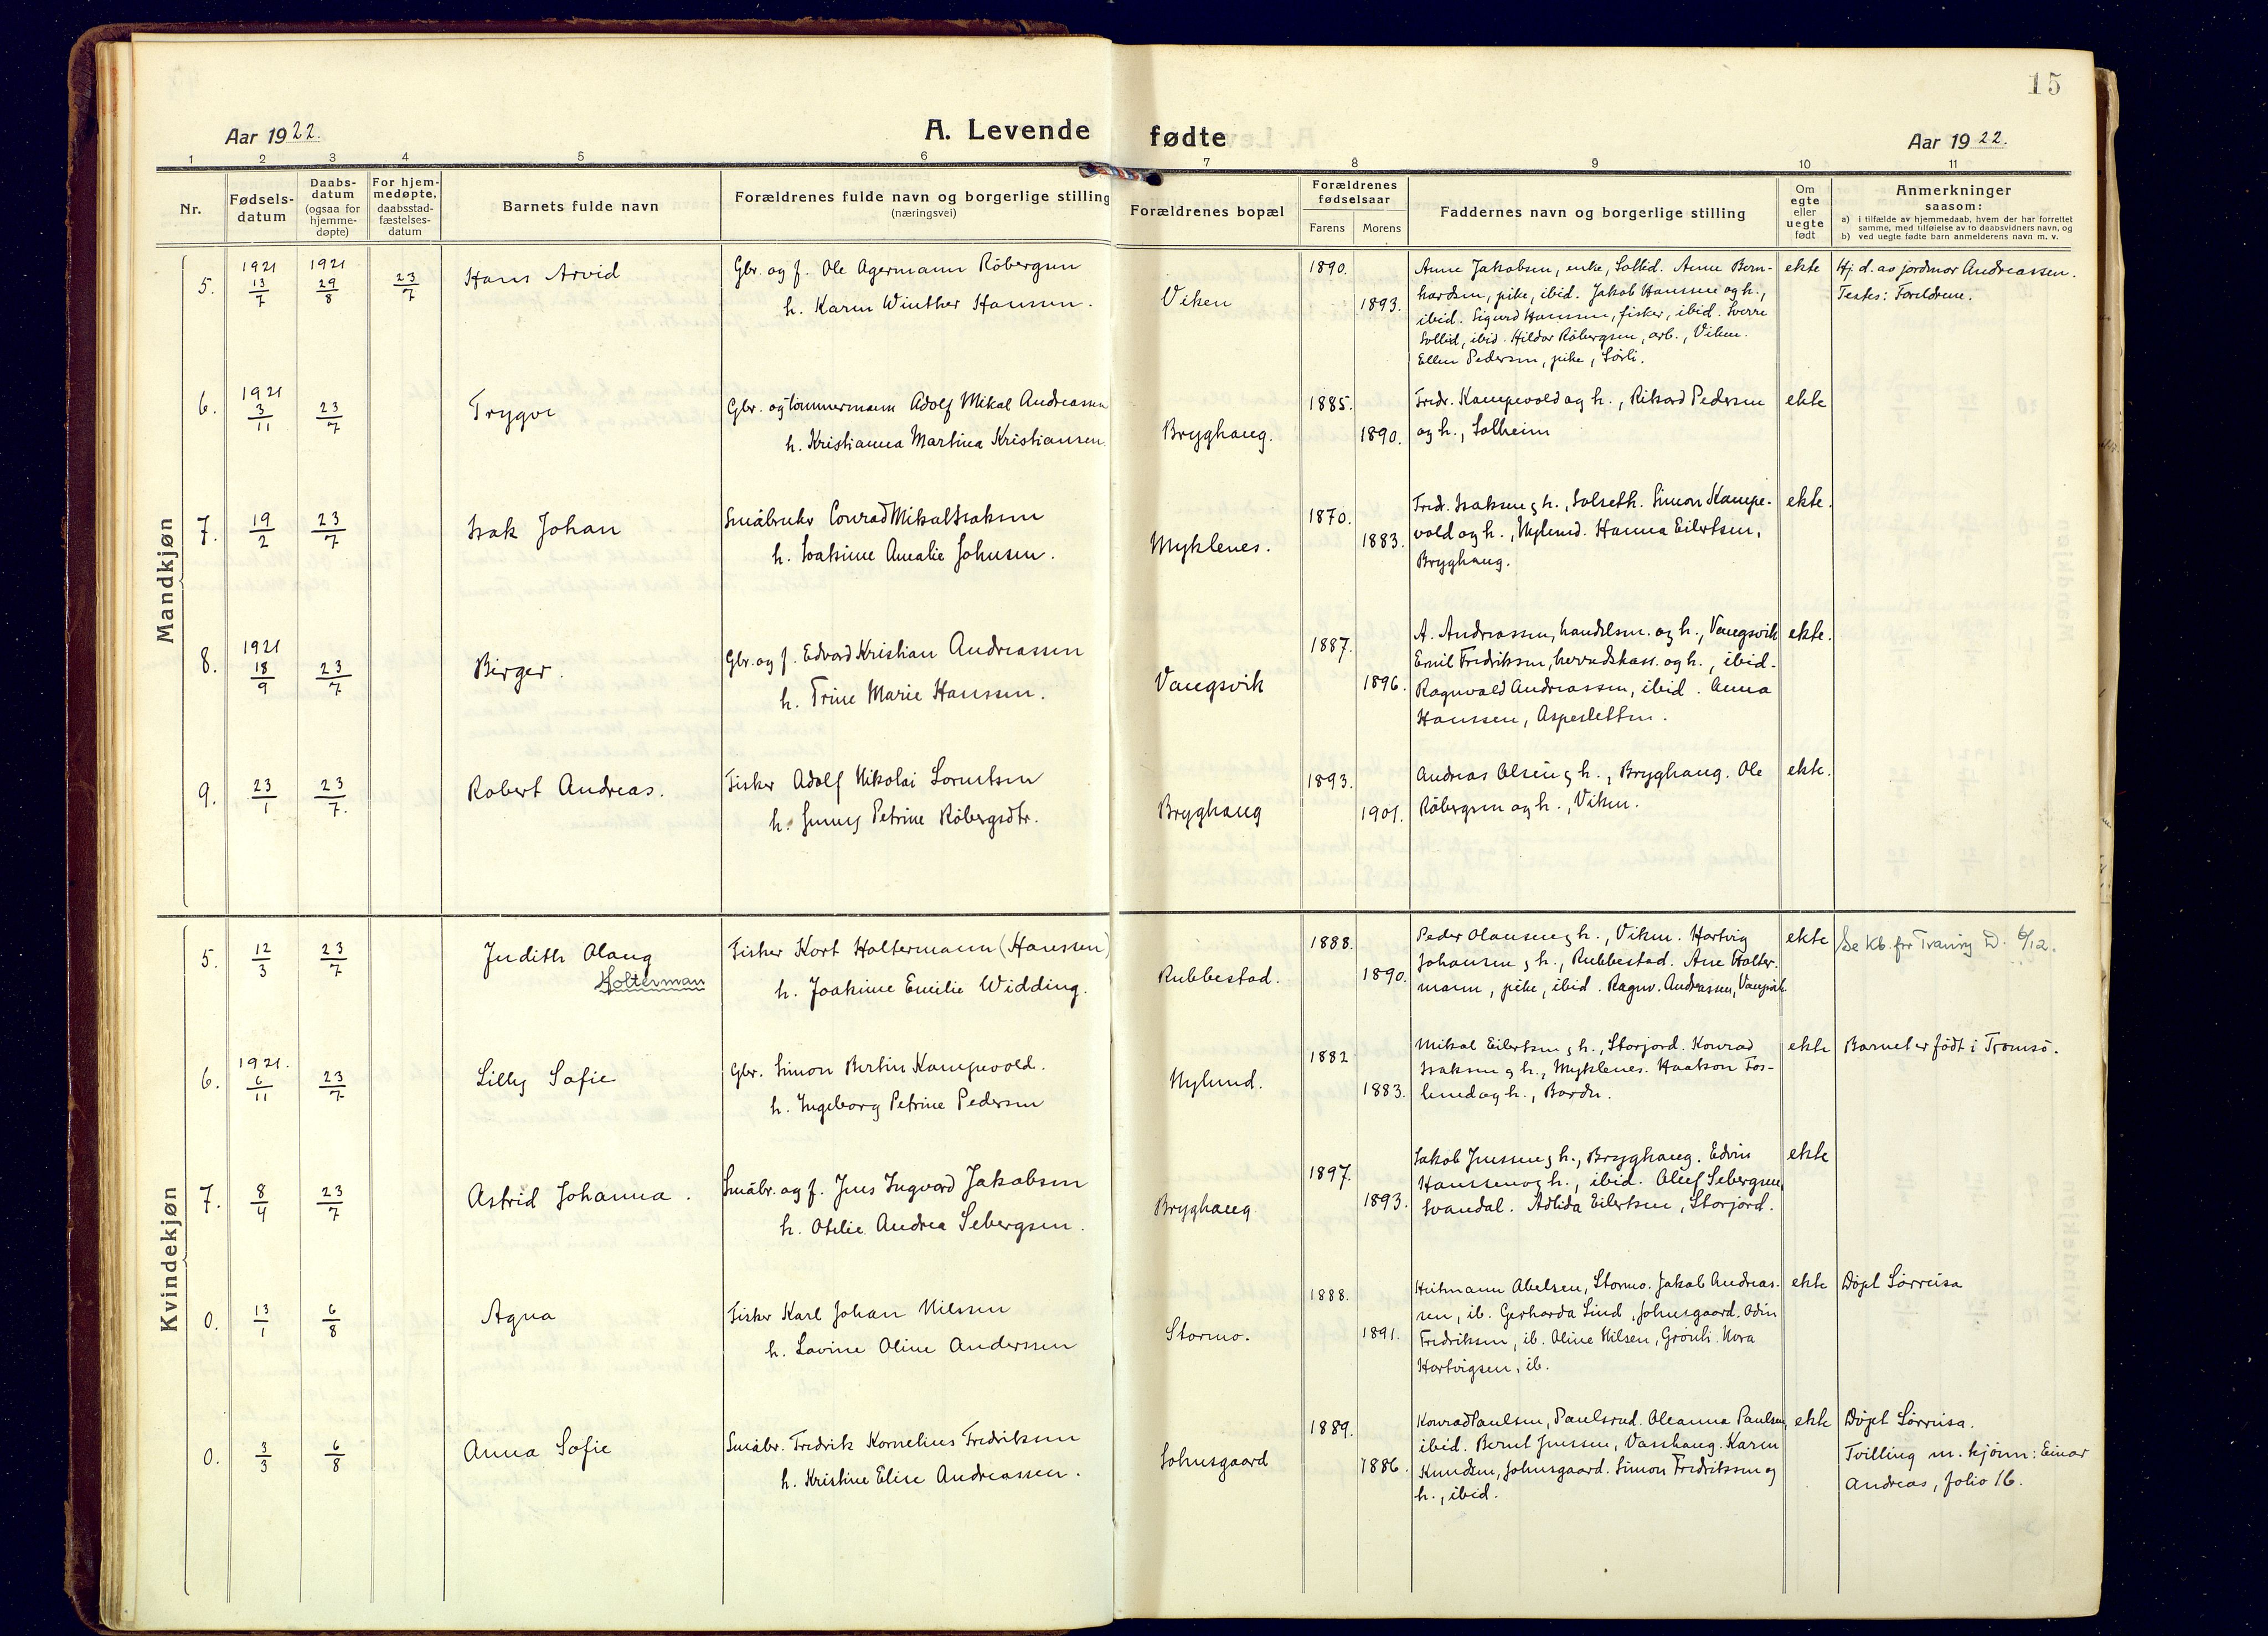 15
Aar 1922.
A. Levende fødte
Aar 1922.
1 2 3 4 5 6 7 8 9 10 11
Nr.
Fødsels-
datum
Daabs-
datum
(ogsaa for
hjemme-
døpte)
For hjem-
medøpte,
daabsstad-
fæstelses-
datum
Barnets fulde navn
Forældrenes fulde navn og borgerlige stilling
(næringsvei)
Forældrenes bopæl
Forældrenes
fødselsaar
Farens
Morens
Faddernes navn og borgerlige stilling
Om
egte
eller
uegte
født
Anmerkninger
saasom:
a) i tilfælde av hjemmedaab, hvem der har forrettet
samme, med tilføielse av to daabsvidners navn, og
b) ved uegte fødte barn anmelderens navn m. v.
Mandkjøn
5.
1921
13/7
1921
29/8
23/7
Hans Arvid
Gbr. og f. Ole Agermann Röbergsen
h. Karen Winther Hansen.
Viken
1890.
1893.
Anne Jakobsen, enke, Sollid. Anne Bern-
hardsen, pike, ibid. Jakob Hanssen og h.,
ibid. Sigurd Hanssen, fisker, ibid. Sverre
Sollid, ibid. Hildor Röbergsen, arb., Viken.
Ellen Pedersen, pike, Sörli.
ekte
Hj. d. av jordmor Andreassen.
Testes: Foreldrene.
6.
1921
3/11
23/7
Trygve
Gbr. og tömmermann Adolf Mikal Andreassen
h. Kristianna Martina Kristiansen.
Bryghaug.
1885.
1890.
Fredr. Kampevold og h., Rikard Pedersen
og h., Solheim
ekte
7.
19/2
23/7
Isak Johan
Småbruker Conrad Mikal Isaksen
h. Joakime Amalie Johnsen.
Myklenes.
1870.
1883.
Fredr. Isaksen og h., Solseth. Simon Kampe-
vold og h., Nylund. Hanna Eilertsen,
Bryghaug.
ekte.
8.
1921
18/9
23/7
Birger.
Gbr. og f. Edvard Kristian Andreassen
h. Trine Marie Hanssen.
Vangsvik
1887.
1896.
A. Andreassen, handelsm. og h., Vangsvik
Emil Fredriksen, herredskass. og h., ibid.
Ragnvald Andreassen, ibid. Anna
Hanssen, Aspesletten.
ekte.
9.
23/1
23/7.
Robert Andreas.
Fisker Adolf Nikolai Lorentsen
h. Jenny Petrine Röbergsdtr.
Bryghaug
1893.
1901.
Andreas Olsen og h., Bryghaug. Ole
Röbergsen og h., Viken.
ekte.
Kvindekjøn
5.
12/3
23/7
Judith Olaug
Holterman
Fisker Kort Holtermann (Hanssen)
h. Joakime Emilie Widding.
Rubbestad.
1888.
1890.
Peder Olausen og h., Viken. Hartvig
Johansen og h., Rubbestad. Ane Holter-
mann, pike, ibid. Ragnv. Andreassen, Vangsvik
ekte
Se Kb. for Tranöy D. 6/12.
6.
1921.
6/11
23/7
Lilly Sofie
Gbr. Simon Bertin Kampevold.
h. Ingeborg Petrine Pedersen
Nylund.
1882
1883.
Mikal Eilertsen og h., Storjord. Konrad
Isaksen og h., Myklenes. Haakon Fos-
lund og h., Bardu.
ekte
Barnet er födt i Tromsö.
7.
8/4
23/7
Astrid Johanna.
Småbr. og f. Jens Ingvard Jakobsen
h. Otelie Andrea Sebergsen.
Bryghaug
1897.
1893.
Jakob Jenssen og h., Bryghaug. Edvin
Hanssen og h., ibid. Oluf Sebergsen,
Svandal. Adlida Eilertsen, Storjord.
ekte
0.
13/1
6/8
Agna
Fisker Karl Johan Nilssen
h. Lovine Oline Anderssen
Stormo.
1888.
1891.
Heitmann Abelsen, Stormo. Jakob Andreas-
sen, ib. Gerharda Lind, Johnsgaard. Odin
Fredriksen, ib. Oline Nilsen, Grönli. Nora
Hartvigsen, ib.
ekte
Döpt Sörreisa
0.
3/3
6/8
Anna Sofie
Småbr. Fredrik Kornelius Fredriksen
h. Kristine Elise Andreassen.
Johnsgaard
1889.
1886.
Konrad Paulsen, Paulsrud. Oleanna Paulsen,
ibid. Bernt Jenssen, Vasshaug. Karen
Knudsen, Johnsgaard. Simon Fredrikssen og
h., ibid.
ekte
Döpt Sörreisa.
Tvilling m. kjönn: Einar
Andreas, folio 16.